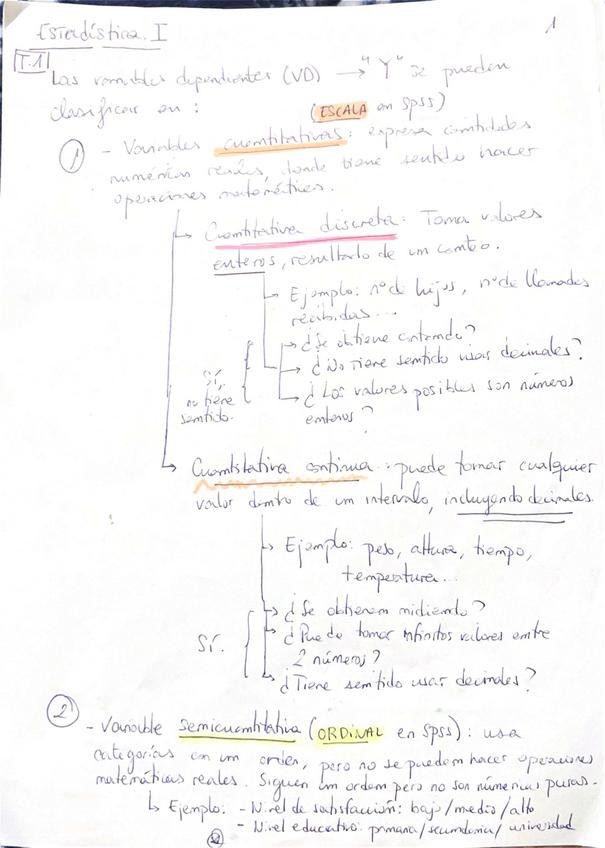 Estadística I
1
T.1
Las variables dependientes (VD) → "Y" se pueden
clasificar en :
(ESCALA en SPSS)
1 - Variables cuantitativas: expresa cantidades
numéricas reales, donde tiene sentido hacer
operaciones matemáticas.
↳ Cuantitativa discreta: Toma valores
enteros, resultado de un conteo.
Ejemplo: nº de hijos, nº de llamadas
recibidas...
→ ¿Se obtiene contando?
→ ¿No Tiene sentido usar decimales?
→ ¿Los valores posibles son números
enteros?
Sí,
no tiene
sentido.
↳ Cuantitativa continua: puede tomar cualquier
valor dentro de un intervalo, incluyendo decimales.
↳ Ejemplo: peso, altura, tiempo,
temperatura...
→ ¿Se obtienen midiendo?
→ ¿Puede tomar infinitos valores entre
2 números?
→ ¿Tiene sentido usar decimales?
Sí.
2 - Variable semicuantitativa (ORDINAL en SPSS): usa
categorías con un orden, pero no se pueden hacer operaciones
matemáticas reales. Siguen un orden pero no son numéricas puras.
↳ Ejemplo: - Nivel de satisfacción: bajo/medio/alto
- Nivel educativo: primaria/secundaria/universidad